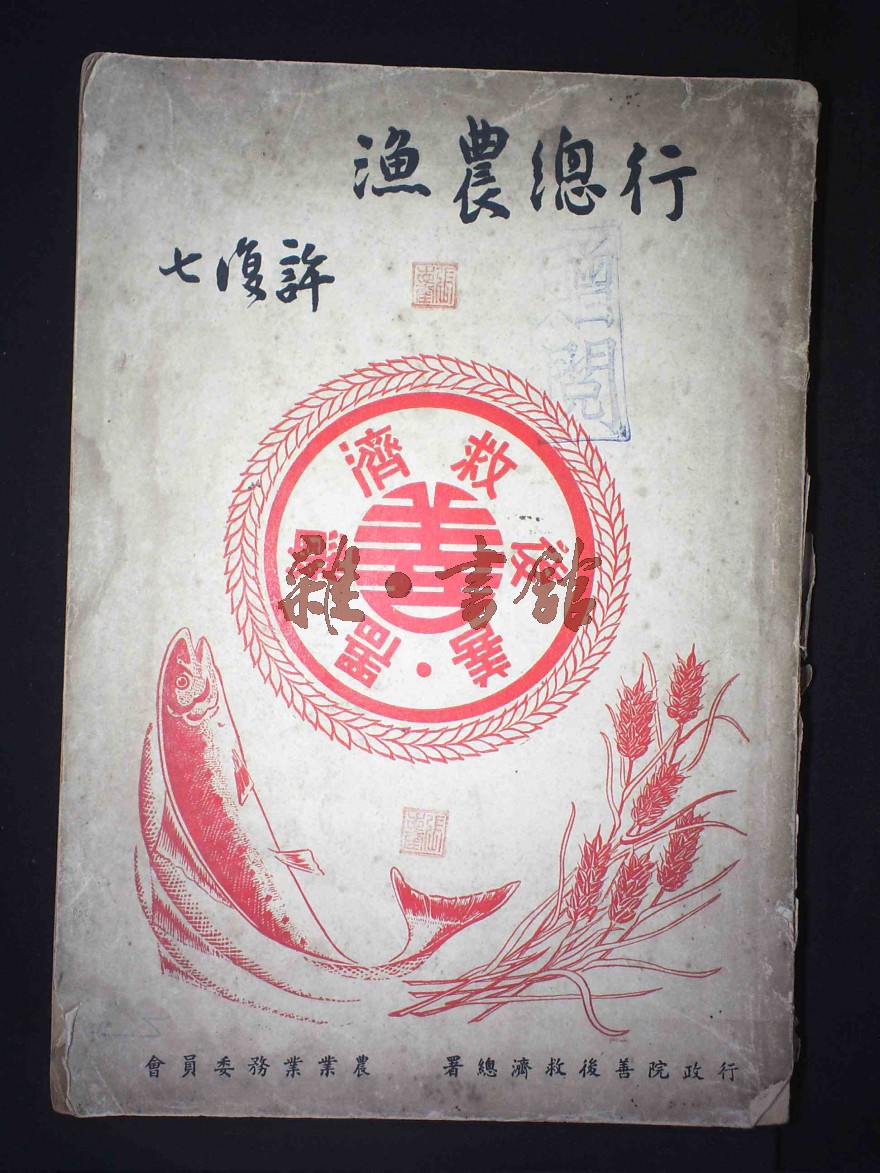 行總農漁
許復七
贈閱
善後救濟總署
雜·書館
行政院善後救濟總署 農業業務委員會